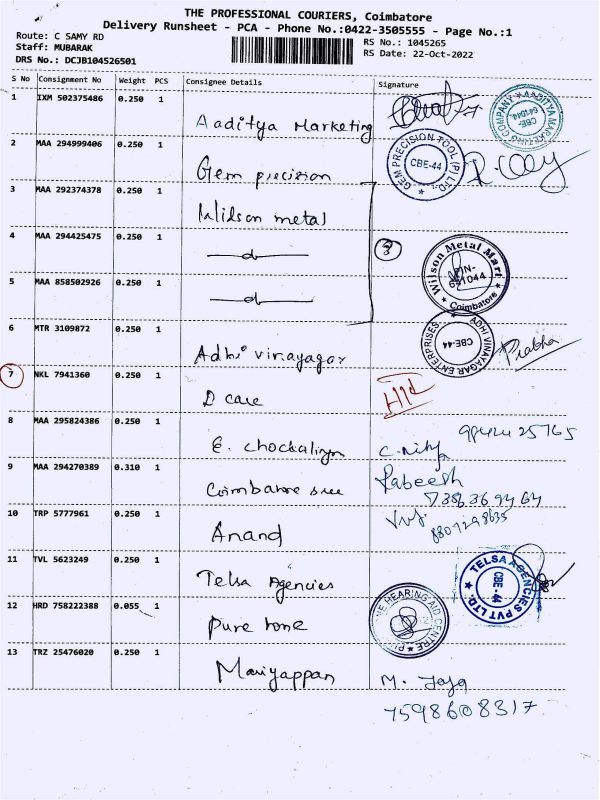 THE PROFESSIONAL COURIERS, Coimbatore
Delivery Runsheet - PCA - Phone No.:0422-3505555 - Page No.:1
Route: C SAMY RD
Staff: MUBARAK
DRS No.: DCJB104526501
RS No.: 1045265
RS Date: 22-Oct-2022
S No Consignment No Weight PCS Consignee Details Signature
1 IXM 502375486 0.250 1 Aaditya Marketing
AADITYA MARKETING COMPANY CBE- 641044
2 MAA 294999406 0.250 1 Gem precision
GEM PRECISION TOOL (P) LTD., CBE-44
3 MAA 292374378 0.250 1 Wilson metal
4 MAA 294425475 0.250 1 — do —
3
Wilson Metal Mart PIN- 641044 Coimbatore
5 MAA 858502926 0.250 1 — do —
6 MTR 3109872 0.250 1 Adhi vinayagar
ADHI VINAYAGAR ENTERPRISES CBE-44 Prabha
7 NKL 7941360 0.250 1 D care
8 MAA 295824386 0.250 1 E. chockalingm
9 MAA 294270389 0.310 1 Coimbatore
10 TRP 5777961 0.250 1 Anand
11 TVL 5623249 0.250 1 Telsa Agencies
TELSA AGENCIES PVT LTD. CBE - 44
12 HRD 758222388 0.055 1 Pure tone
HEARING AID CENTRE
13 TRZ 25476020 0.250 1 Mariyappan M.
7598608317